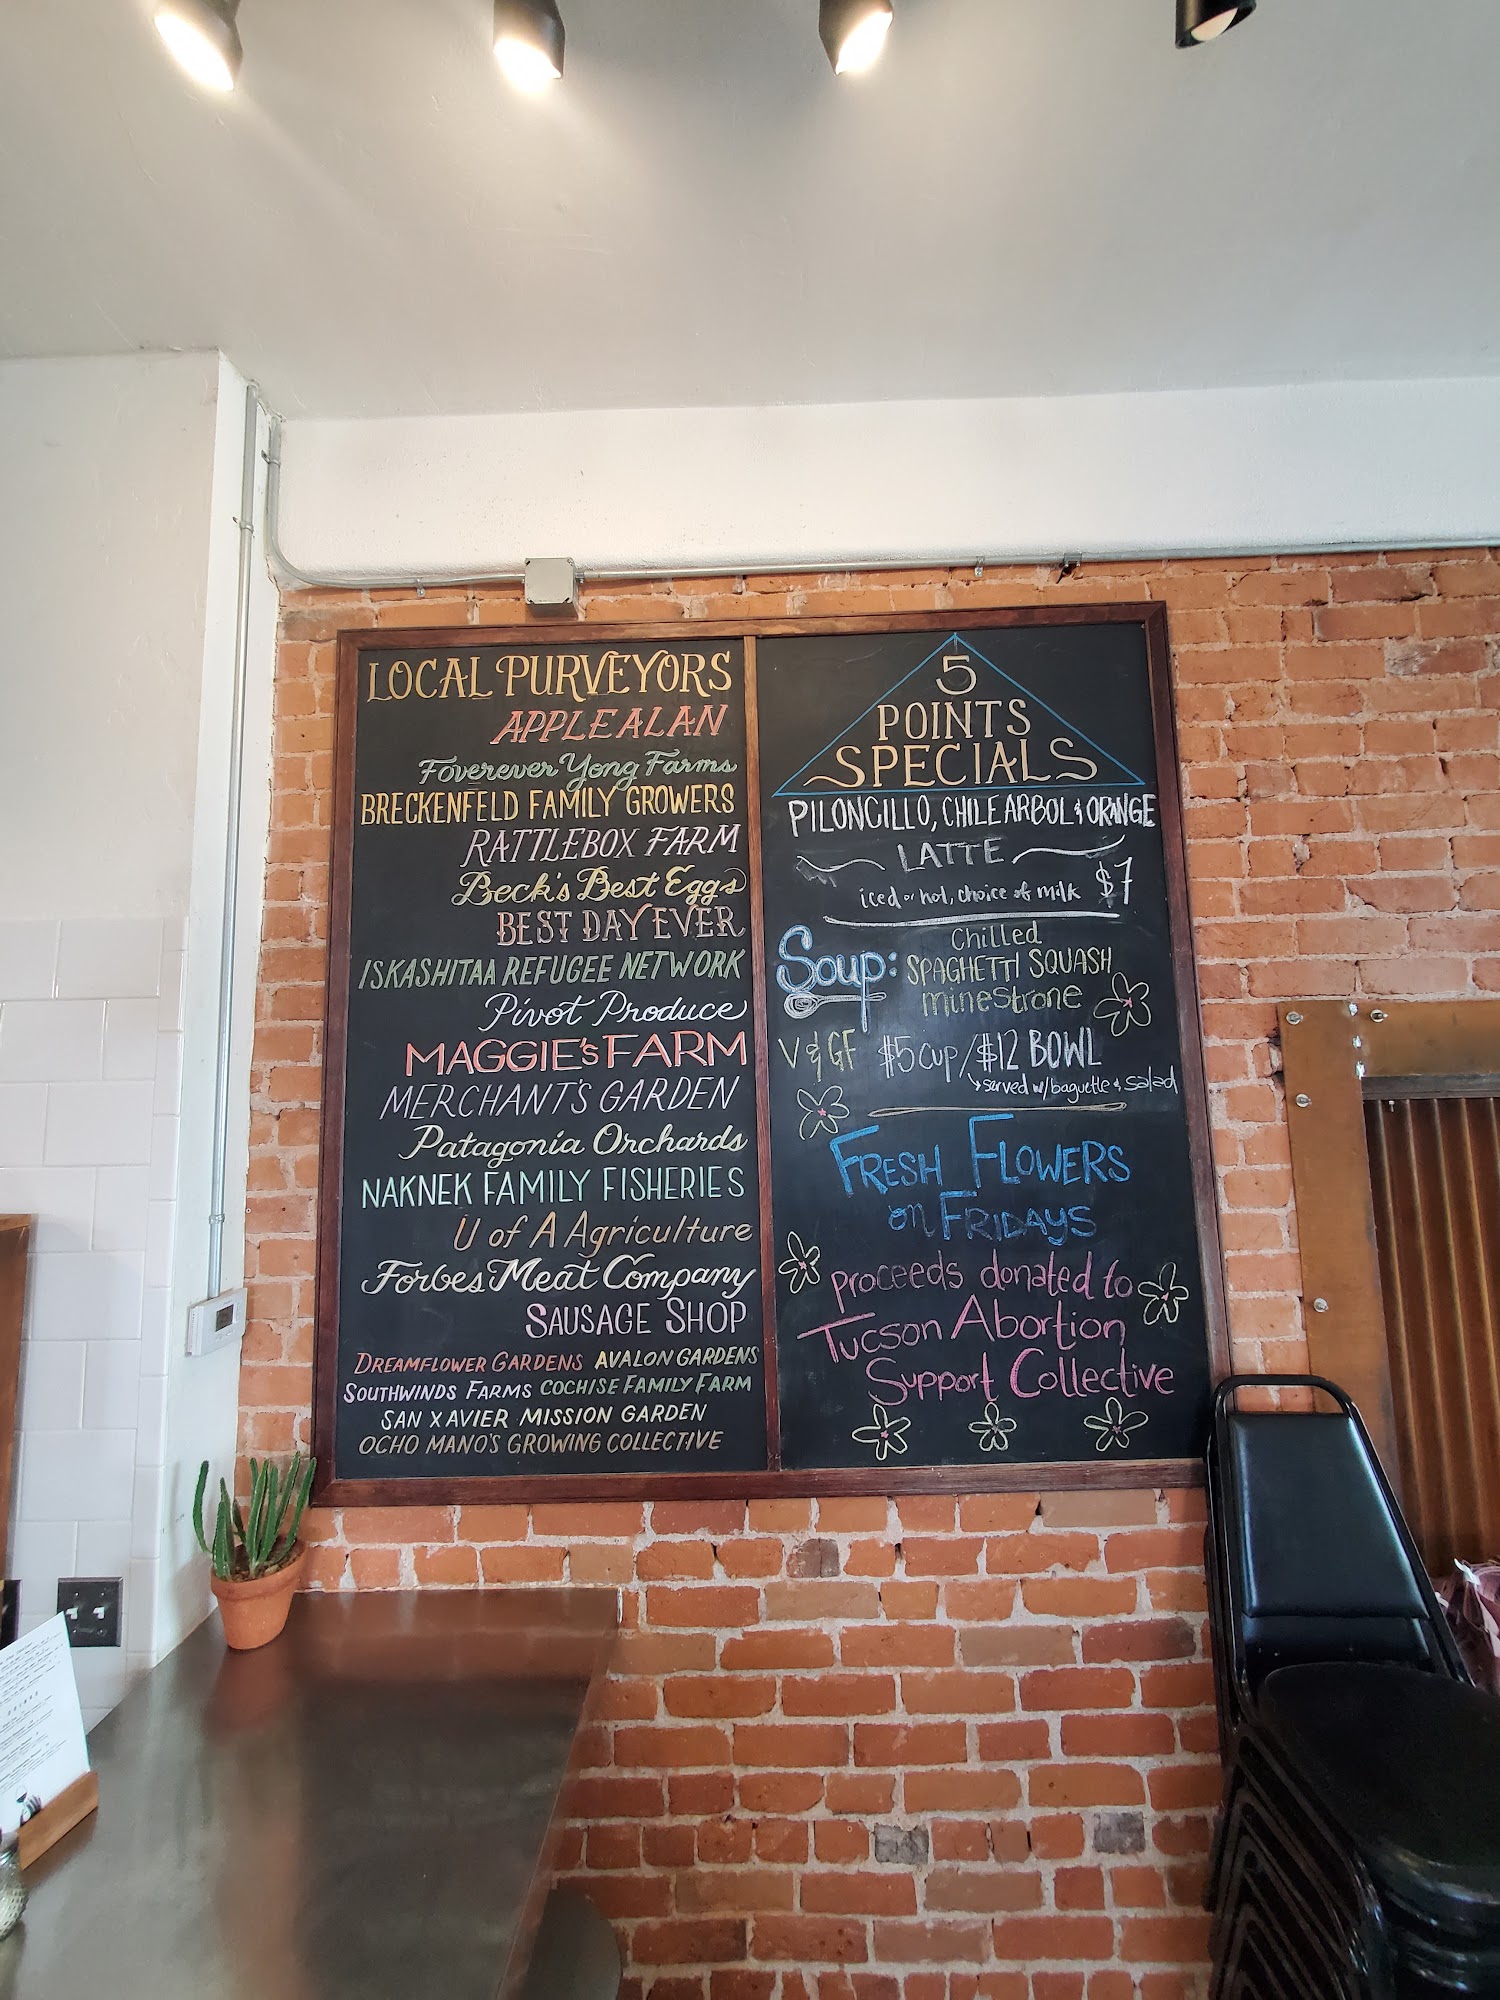 LOCAL PURVEYORS
APPLE ALAN
Foverever Yong Farms
BRECKENFELD FAMILY GROWERS
RATTLEBOX FARM
Beck's Best Eggs
BEST DAY EVER
ISKASHITAA REFUGEE NETWORK
Pivot Produce
MAGGIE'S FARM
MERCHANT'S GARDEN
Patagonia Orchards
NAKNEK FAMILY FISHERIES
U of A Agriculture
Forbes Meat Company
SAUSAGE SHOP
DREAMFLOWER GARDENS AVALON GARDENS
SOUTHWINDS FARMS COCHISE FAMILY FARM
SAN XAVIER MISSION GARDEN
OCHO MANO'S GROWING COLLECTIVE
5
POINTS
SPECIALS
PILONCILLO, CHILE ARBOL & ORANGE
LATTE
iced or hot, choice of milk $7
Soup: Chilled
SPAGHETTI SQUASH
minestrone
V & GF $5 cup / $12 BOWL
served w/ baguette & salad
FRESH FLOWERS
on FRIDAYS
Proceeds donated to
Tucson Abortion
Support Collective